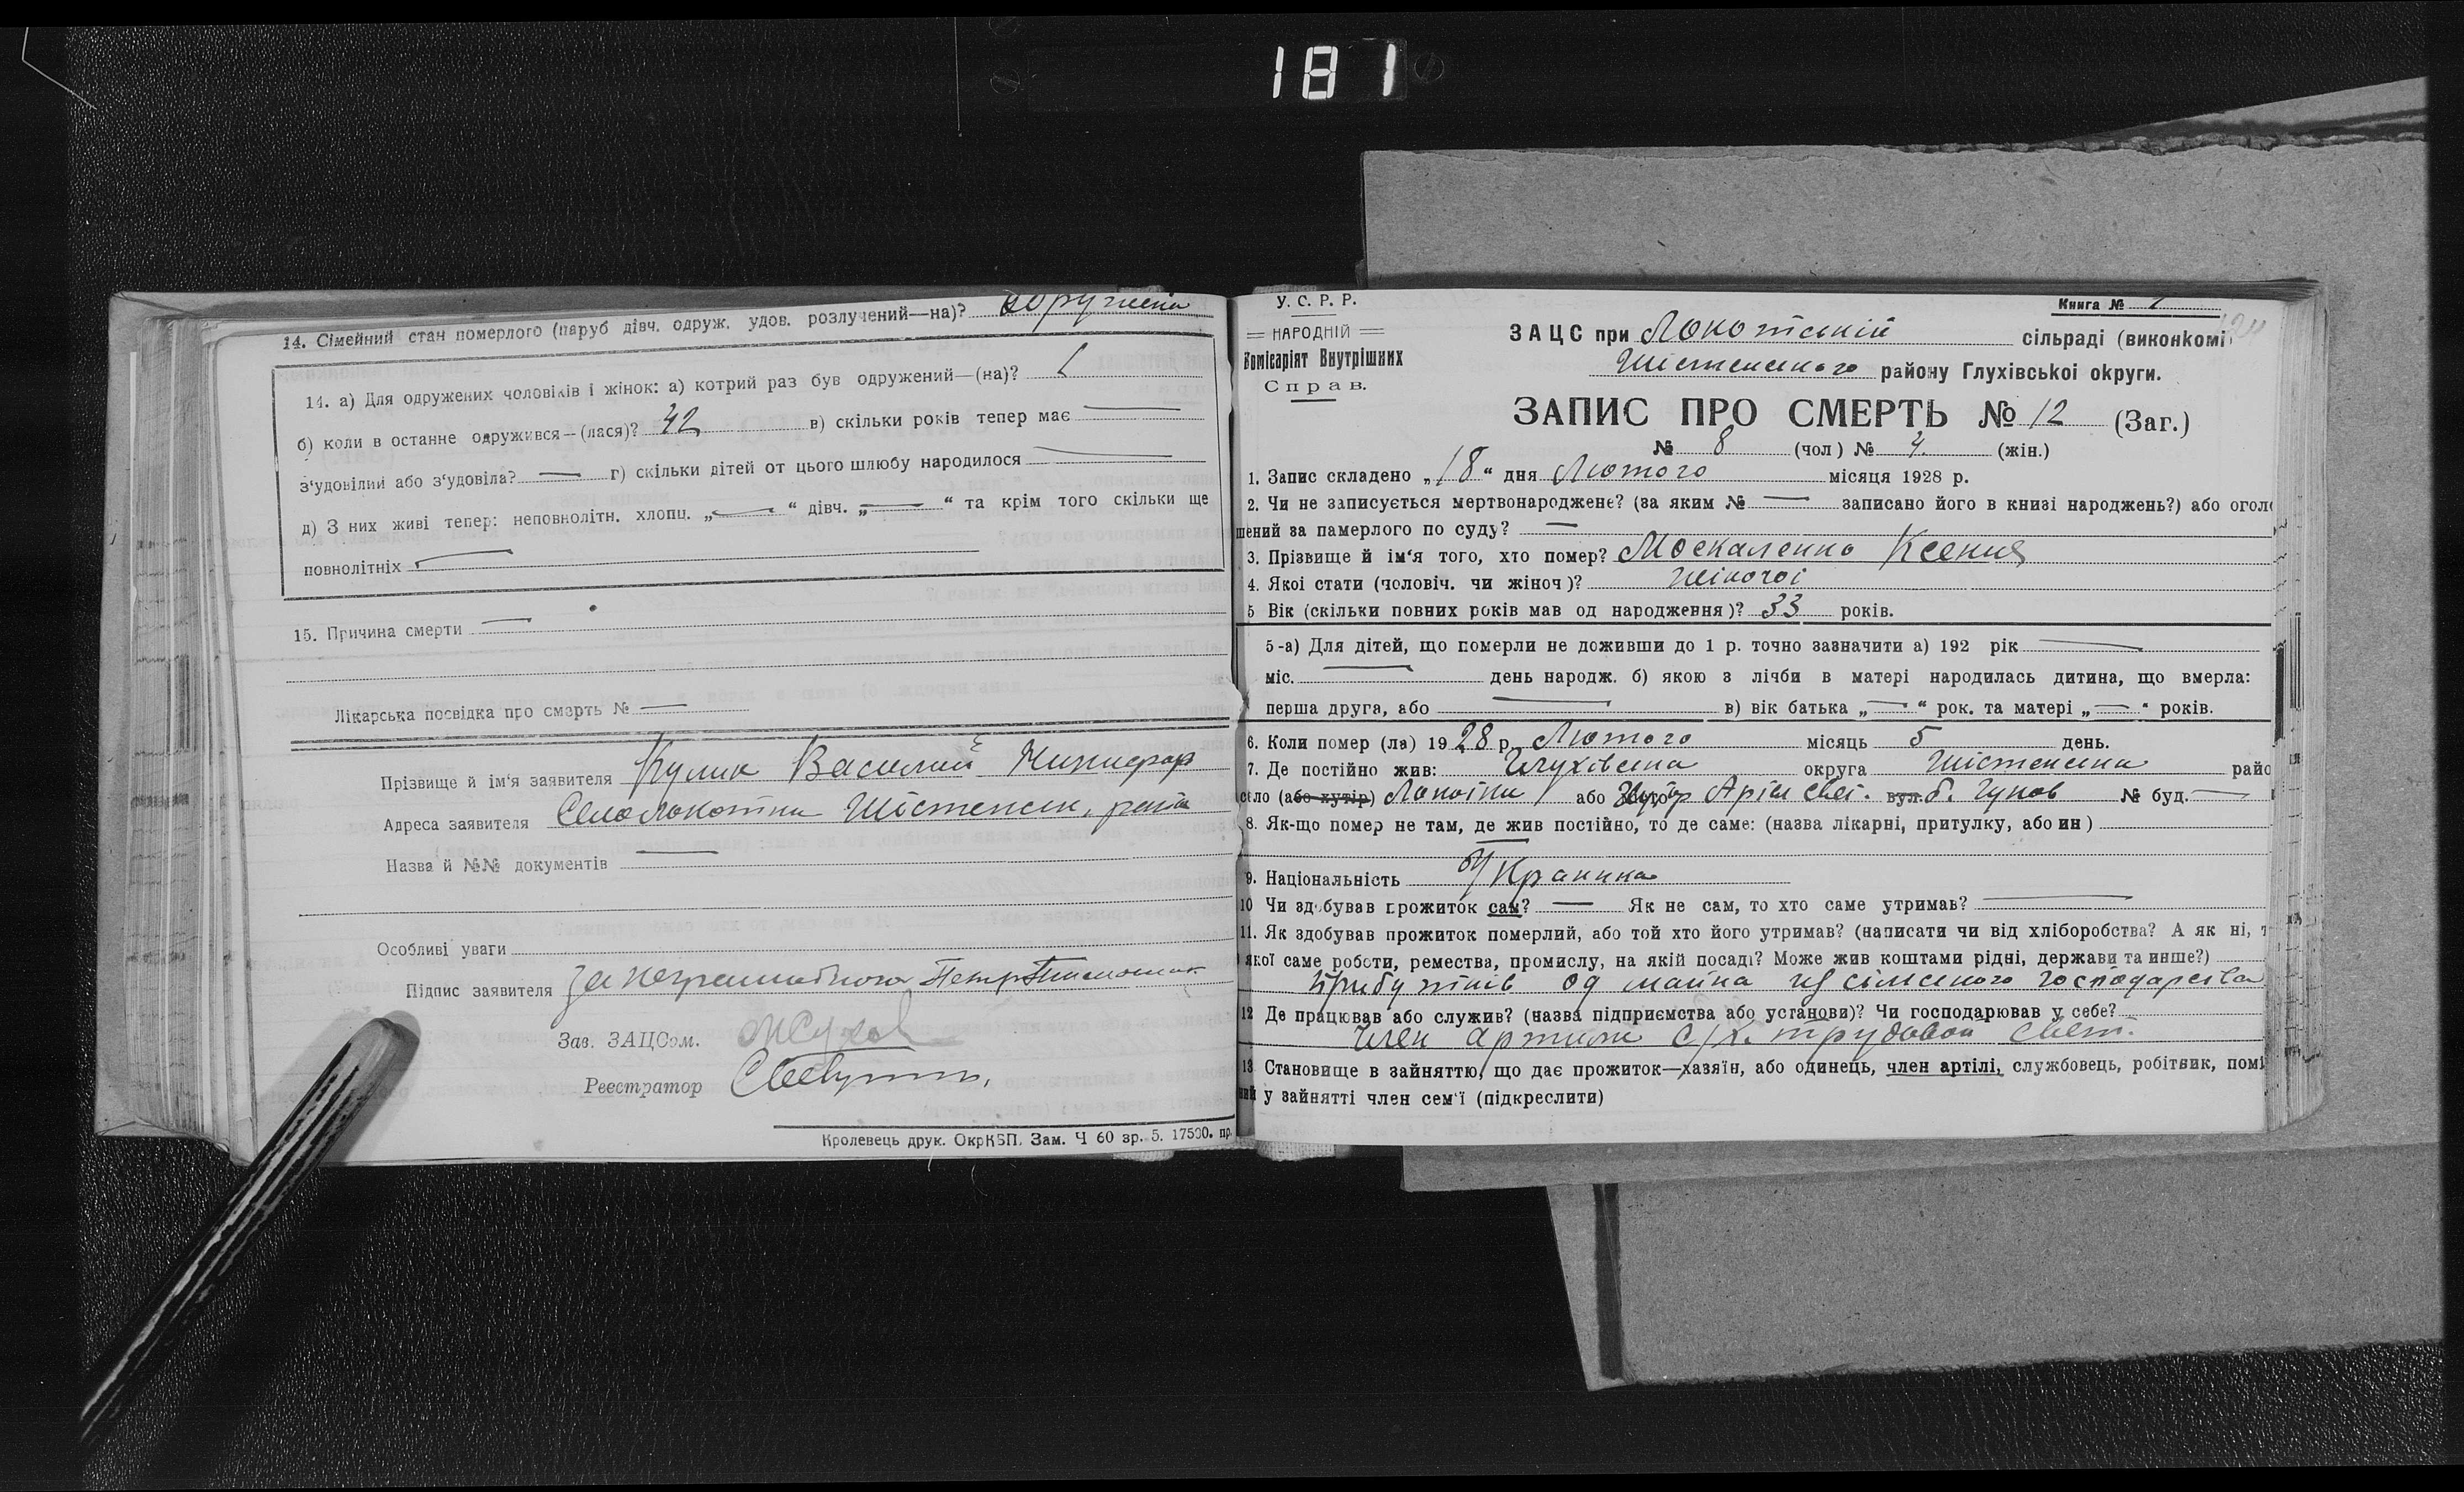 181
14. Сімейний стан померлого (паруб дівч. одруж. удов. розлучений—на)? одружена
14. а) Для одружених чоловіків і жінок: а) котрий раз був одружений—(на)?
б) коли в останне одружився—(лася)? 42 в) скільки років тепер має —
з'удовілий або з'удовіла? — г) скільки дітей от цього шлюбу народилося —
д) З них живі тепер: неповнолітн. хлопц. „—“ дівч. „—“ та крім того скільки ще
повнолітніх —
15. Причина смерти —
Лікарська посвідка про смерть № —
Прізвище й ім'я заявителя Кулик Василий
Адреса заявителя Село Локотки Шістенськ. района
Назва й №№ документів —
Особливі уваги
Підпис заявителя За неграмотного Петр
Зав. ЗАЦСом.
Реестратор
Кролевець друк. ОкрКВП. Зам. Ч 60 зр. 5. 17500. пр.
У. С. Р. Р.
НАРОДНІЙ
Комісаріят Внутрішних
Справ.
Книга №
ЗАЦС при Локотській сільраді (виконкомі
Шістенского району Глухівської округи.
ЗАПИС ПРО СМЕРТЬ № 12 (Заг.)
№ 8 (чол) № 4. (жін.)
1. Запис складено „18“ дня Лютого місяця 1928 р.
2. Чи не записується мертвонароджене? (за яким № — записано його в книзі народжень?) або оголо
шений за памерлого по суду? —
3. Прізвище й ім'я того, хто помер? Москаленко Ксения
4. Якоі стати (чоловіч. чи жіноч)? жіночоі
5 Вік (скільки повних років мав од народження)? 33 років.
5-а) Для дітей, що померли не доживши до 1 р. точно зазначити а) 192 рік —
міс. — день народж. б) якою з лічби в матері народилась дитина, що вмерла:
перша друга, або — в) вік батька „—“ рок. та матері „—“ років.
6. Коли помер (ла) 1928 р. Лютого місяць 5 день.
7. Де постійно жив: Глухівська округа Шістенська райо
село (або хутір) Локотки або хутор Артіл свет. вул. № буд. —
8. Як-що помер не там, де жив постійно, то де саме: (назва лікарні, притулку, або ин)
—
9. Національність Украинка
10 Чи здобував прожиток сам? — Як не сам, то хто саме утримав? —
11. Як здобував прожиток померлий, або той хто його утримав? (написати чи від хліборобства? А як ні, т
якої саме роботи, ремества, промислу, на якій посаді? Може жив коштами рідні, держави та инше?)
Прибутків од майна из сільского господарства
12 Де працював або служив? (назва підприємства або установи)? Чи господарював у себе?
Член артили с/х. трудовой свет.
13 Становище в зайняттю, що дає прожиток—хазяїн, або одинець, член артілі, службовець, робітник, помі
ний у зайнятті член сем'ї (підкреслити)